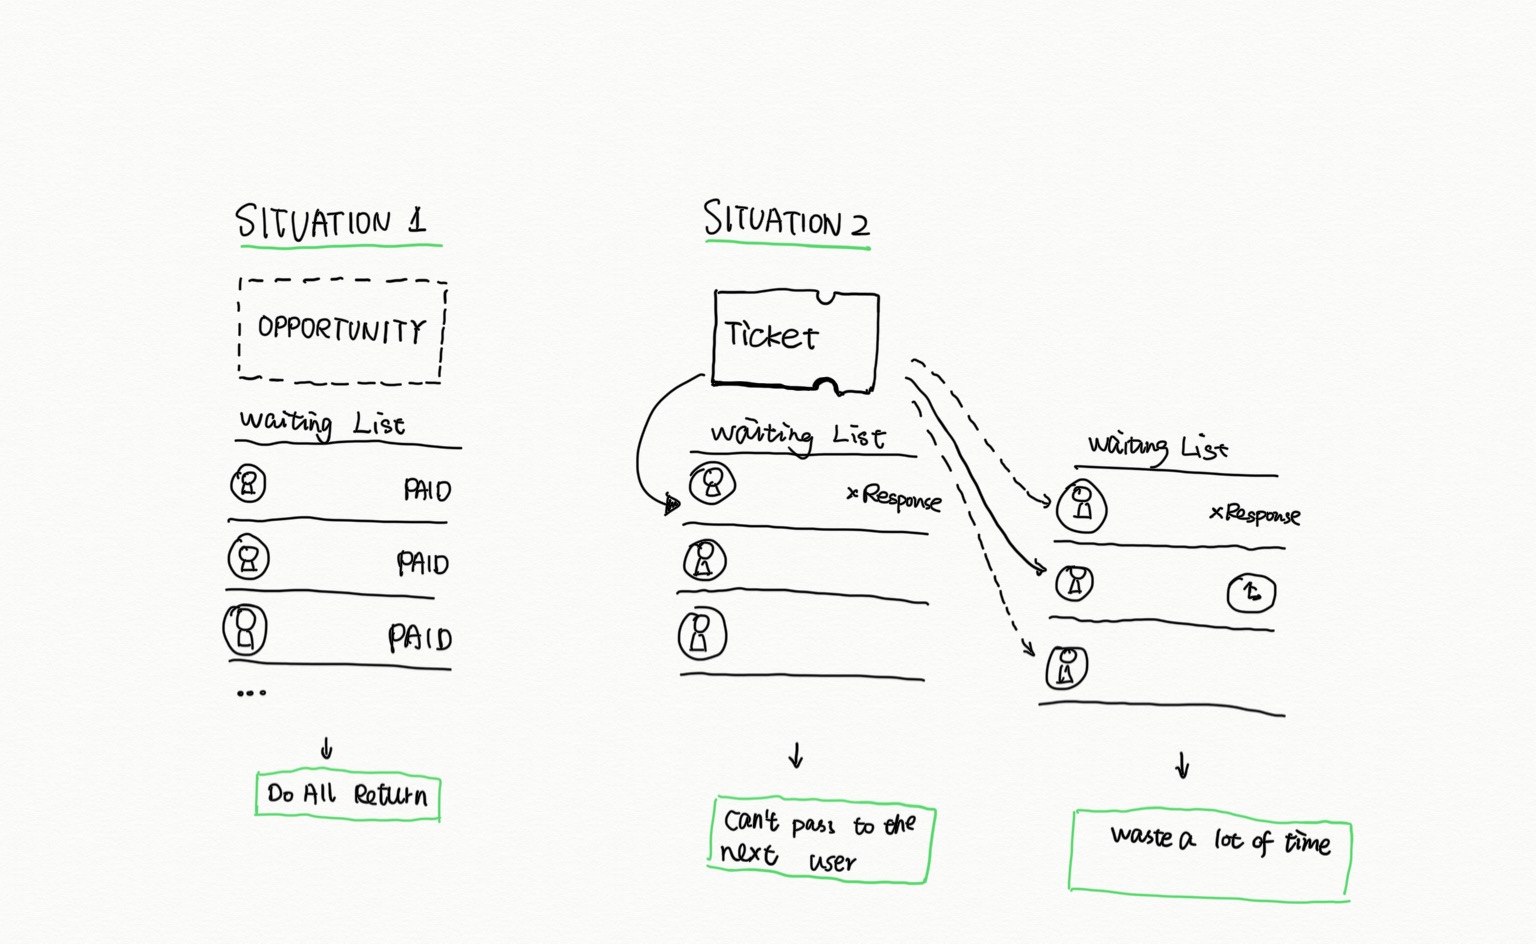 SITUATION 1
OPPORTUNITY
waiting List
PAID
PAID
PAID
...
Do All Return
SITUATION 2
Ticket
waiting List
×Response
can't pass to the
next user
waiting List
×Response
waste a lot of time